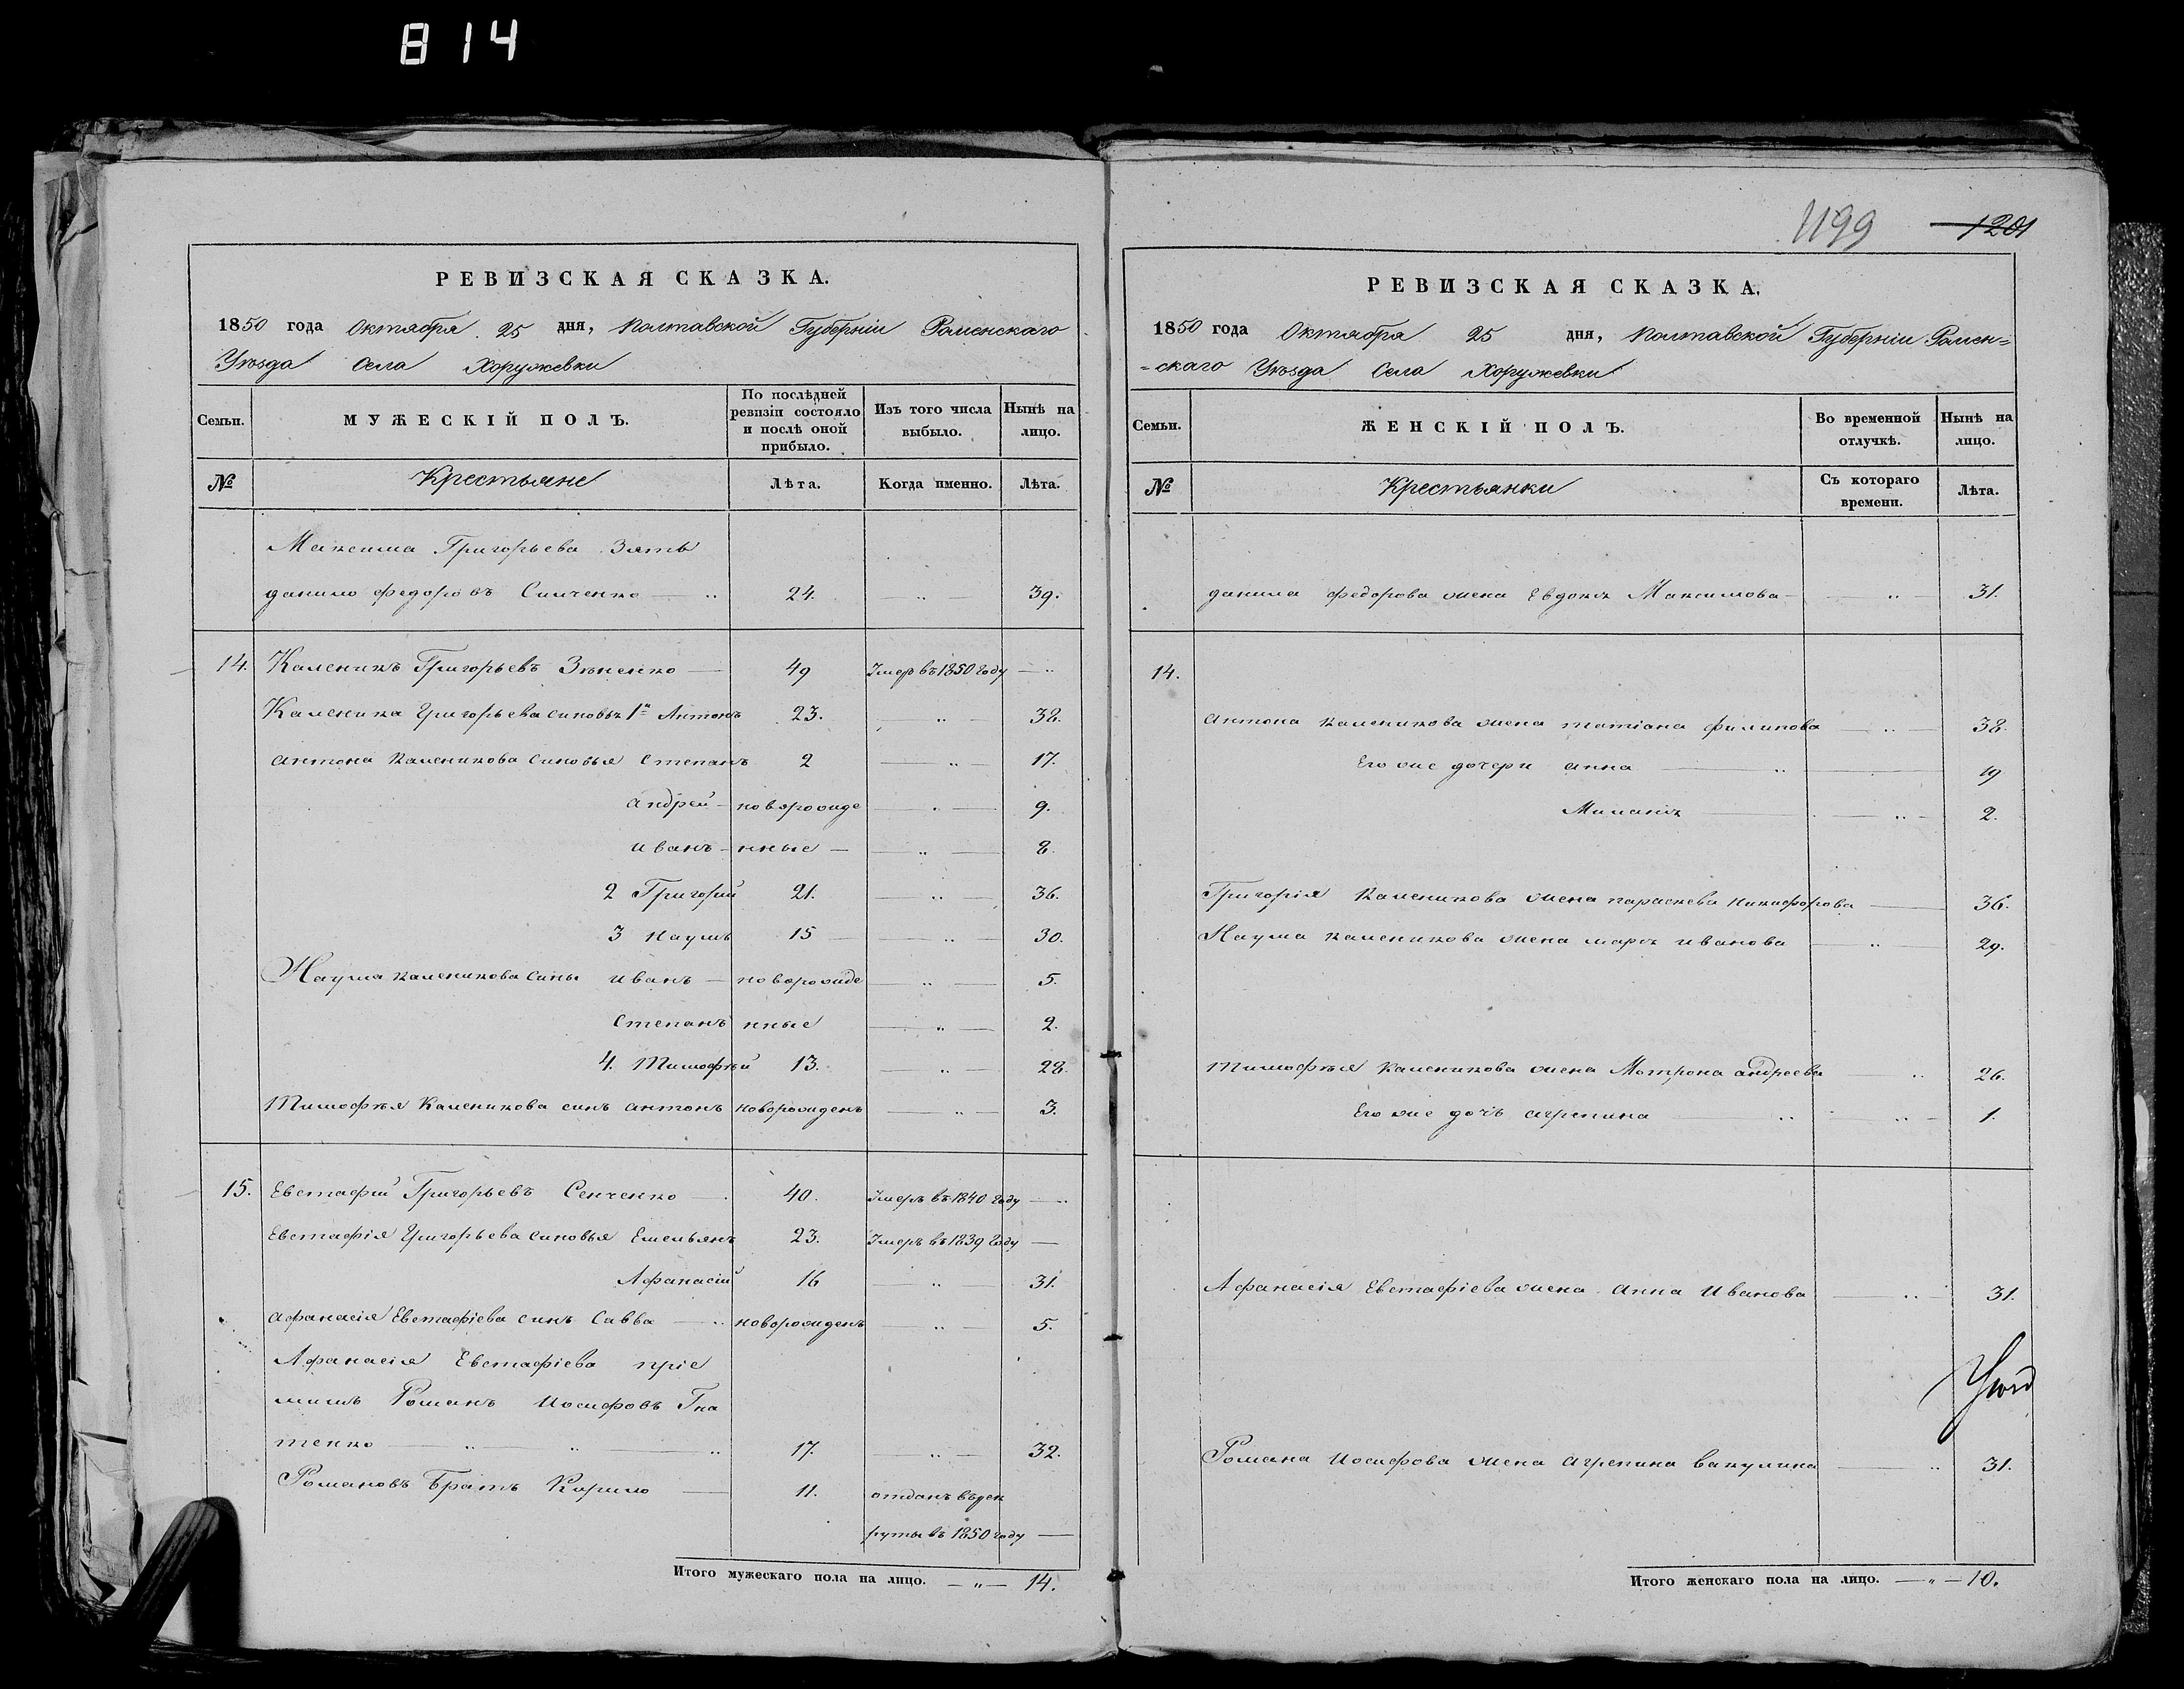 814
РЕВИЗСКАЯ СКАЗКА.
1850 года Октября 25 дня, Полтавской Губерніи Роменскаго
Уѣзда Села Хоружевки
Семьи. МУЖЕСКІЙ ПОЛЪ. По послѣдней ревизіи состояло и послѣ оной прибыло. Изъ того числа выбыло. Нынѣ на лицо.
№ Крестьяне Лѣта. Когда именно. Лѣта.
Максима Григорьева Зять
данило федоровъ Симченко 24. 39.
14. Каленикъ Григорьевъ Зѣненко 49 Умеръ въ 1850 году
Каленика Григорьева синовья 1й Антонъ 23. 38.
антона Каленикова Синовья Степанъ 2 17.
андрей новорожде 9.
иванъ нные 8.
2 Григорій 21. 36.
3 Наумъ 15 30.
Наума Каленикова сины иванъ новорожде 5.
Степанъ нные 2.
4. Тимофѣй 13. 28.
Тимофѣя Каленикова синъ антонъ новорожденъ 3.
15. Евстафій Григорьевъ Сенченко 40. Умеръ въ 1840 году
Евстафія Григорьева синовья Емельянъ 23. Умеръ въ 1839 году
Афанасій 16 31.
афанасія Евстафіева синъ Савва новорожденъ 5.
Афанасія Евстафіева пріе
мишъ Романъ Иосифовъ Гна
тенко 17. 32.
Романовъ Братъ Кирило 11. отданъ въ рек
руты въ 1850 году
Итого мужескаго пола на лицо. 14.
1199 1201
РЕВИЗСКАЯ СКАЗКА.
1850 года Октября 25 дня, Полтавской Губерніи Ромен=
=скаго Уѣзда Села Хоружевки
Семьи. ЖЕНСКІЙ ПОЛЪ. Во временной отлучкѣ. Нынѣ на лицо.
№ Крестьянки Съ котораго времени. Лѣта.
данила федорова жена Евдокія Максимова 31.
14.
антона Каленикова жена татіана филипова 38.
Его же дочери анна 19
Миланія 2.
Григорія Каленикова жена параскева никифорова 36.
Наума Каленикова жена марія иванова 29.
Тимофѣя Каленикова жена Мотрона андреева 26.
Его же дочь агрепина 1.
Афанасія Евстафіева жена Анна Иванова 31.
Романа Иосифова жена агрепина вакулина 31.
Итого женскаго пола на лицо. 10.